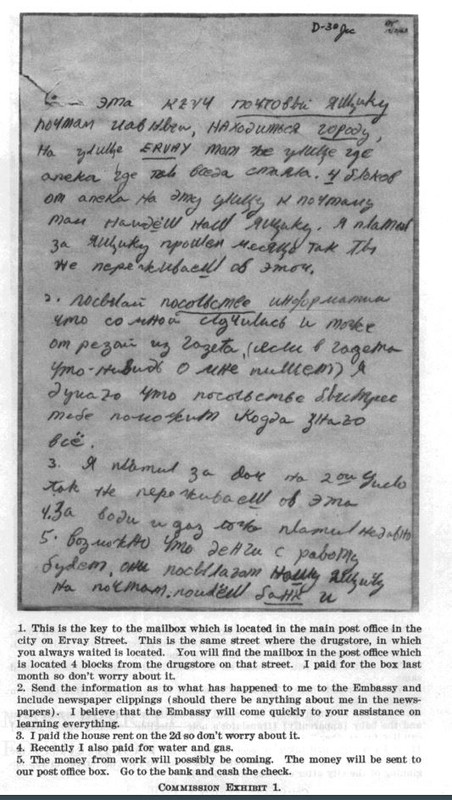 D-30
1. эта ключ почтовый ящику
почтам главный, находиться городу,
на улице ERVAY там же улице где
апека где всегда стаяла. 4 блоков
от апека на эту улицу к почтаму
там найдёш наш ящику. я платил
за ящику прошлом месяцу так ты
не переживаеш об эточ.
2. посылай посольстве информатиа
что со мной случилась и тоже
от резай из газета, (если в газета
что-нибудь о мне пишет) я
думаю что посольстве быстрее
тебе поможит когда знаю
всё.
3. я платил за дом на 2ои число
так не переживаеш об эта
4. За води и газ тоже платил недавно
5. возможно что денги с работы
будет, они посылают нашу ящику
на почтам. поидёш банк и
1. This is the key to the mailbox which is located in the main post office in the
city on Ervay Street. This is the same street where the drugstore, in which
you always waited is located. You will find the mailbox in the post office which
is located 4 blocks from the drugstore on that street. I paid for the box last
month so don't worry about it.
2. Send the information as to what has happened to me to the Embassy and
include newspaper clippings (should there be anything about me in the news-
papers). I believe that the Embassy will come quickly to your assistance on
learning everything.
3. I paid the house rent on the 2d so don't worry about it.
4. Recently I also paid for water and gas.
5. The money from work will possibly be coming. The money will be sent to
our post office box. Go to the bank and cash the check.
COMMISSION EXHIBIT 1.